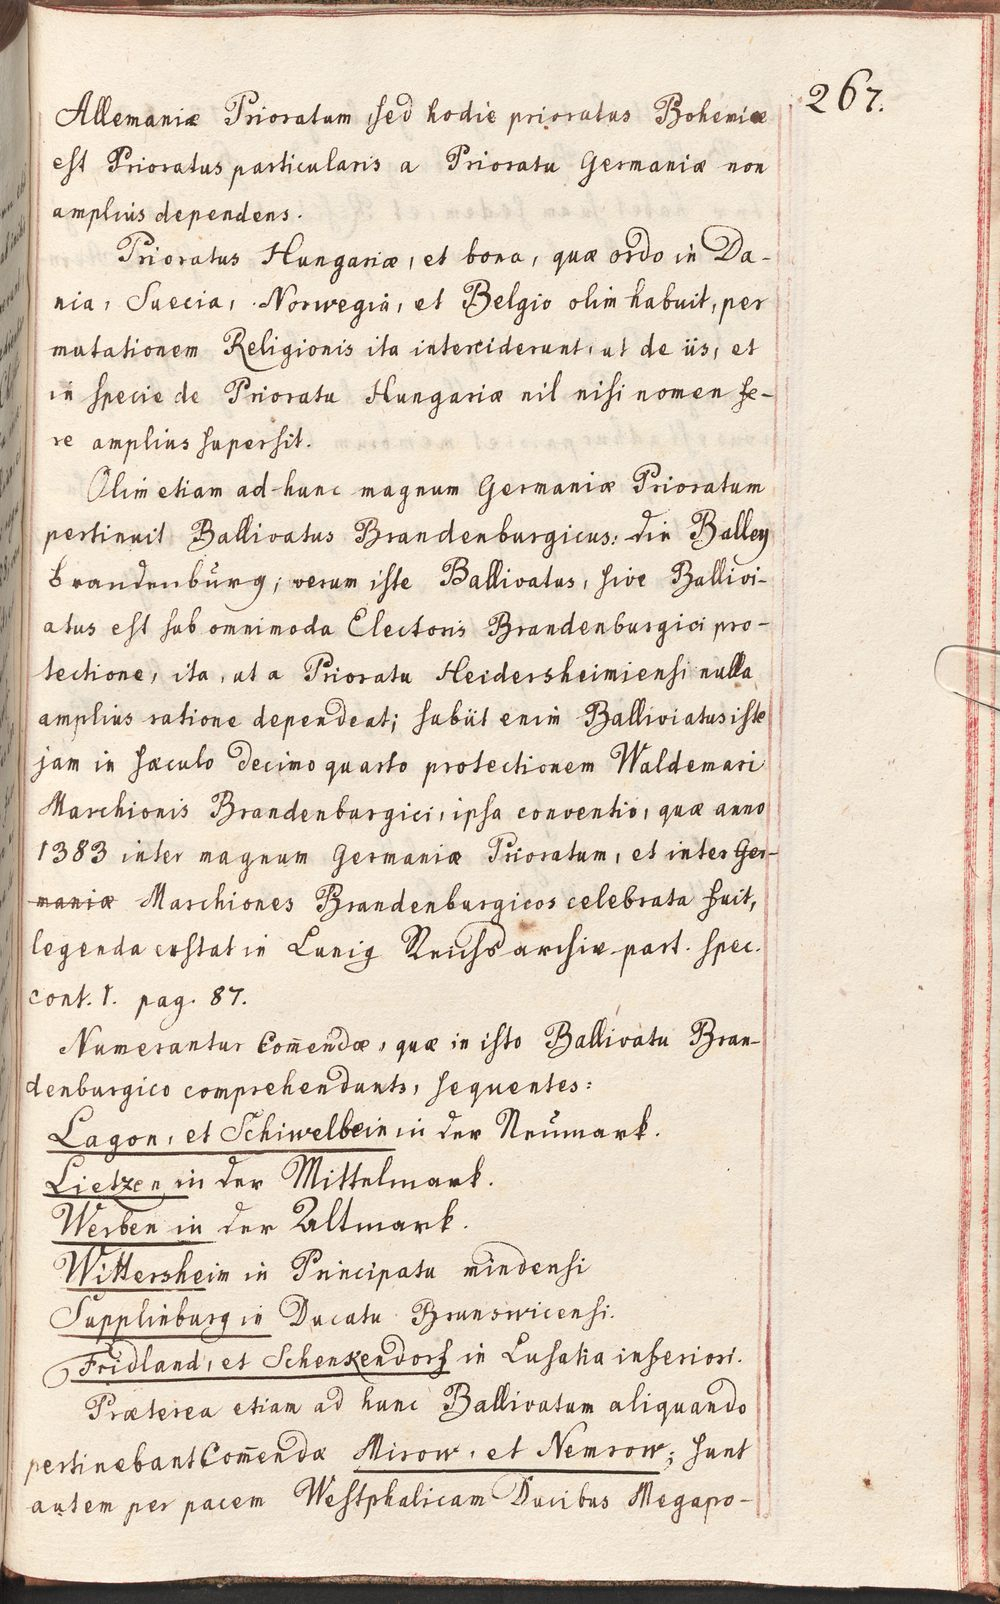 267.
Allemaniæ Prioratum sed hodie prioratus Bohemiæ
est Prioratus particularis a Prioratu Germaniæ non
amplius dependens.
Prioratus Hungariæ, et bona, quæ ordo in Da-
nia, Suecia, Norwegia, et Belgio olim habuit, per
mutationem Religionis ita interciderunt, ut de iis, et
in specie de Prioratu Hungariæ nil nisi nomen fe-
re amplius supersit.
Olim etiam ad hunc magnum Germaniæ Prioratum
pertinuit Ballivatus Brandenburgicus: die Balley
brandenbŭrg; verum iste Ballivatus, sive Ballivi-
atus est sub omnimoda Electoris Brandenburgici pro-
tectione, ita, ut a Prioratu Heidersheimiensi nulla
amplius ratione dependeat; subiit enim Balliviatus iste
jam in sæculo decimo quarto protectionem Waldemari
Marchionis Brandenburgici, ipsa conventio, quæ anno
1383 inter magnum Germaniæ Prioratum, et inter Ger-
maniæ Marchiones Brandenburgicos celebrata fuit,
legenda exstat in Lunig Reichs archiv part. spec.
cont. 1. pag. 87.
Numerantur Com̄endæ, quæ in isto Ballivatu Bran-
denburgico comprehendunts, sequentes:
Lagon, et Schiwelbein in der Neŭmark.
Lietzen in der Mittelmark.
Werben in der Altmark.
Wittersheim in Principatu mindensi
Supplinburg in Ducatu Brunswicensi.
Fridland, et Schenkendorf in Lusatia inferiori.
Præterea etiam ad hunc Ballivatum aliquando
pertinebant Com̄endæ Mirow, et Nemrow; sunt
autem per pacem Westphalicam Ducibus Megapo-